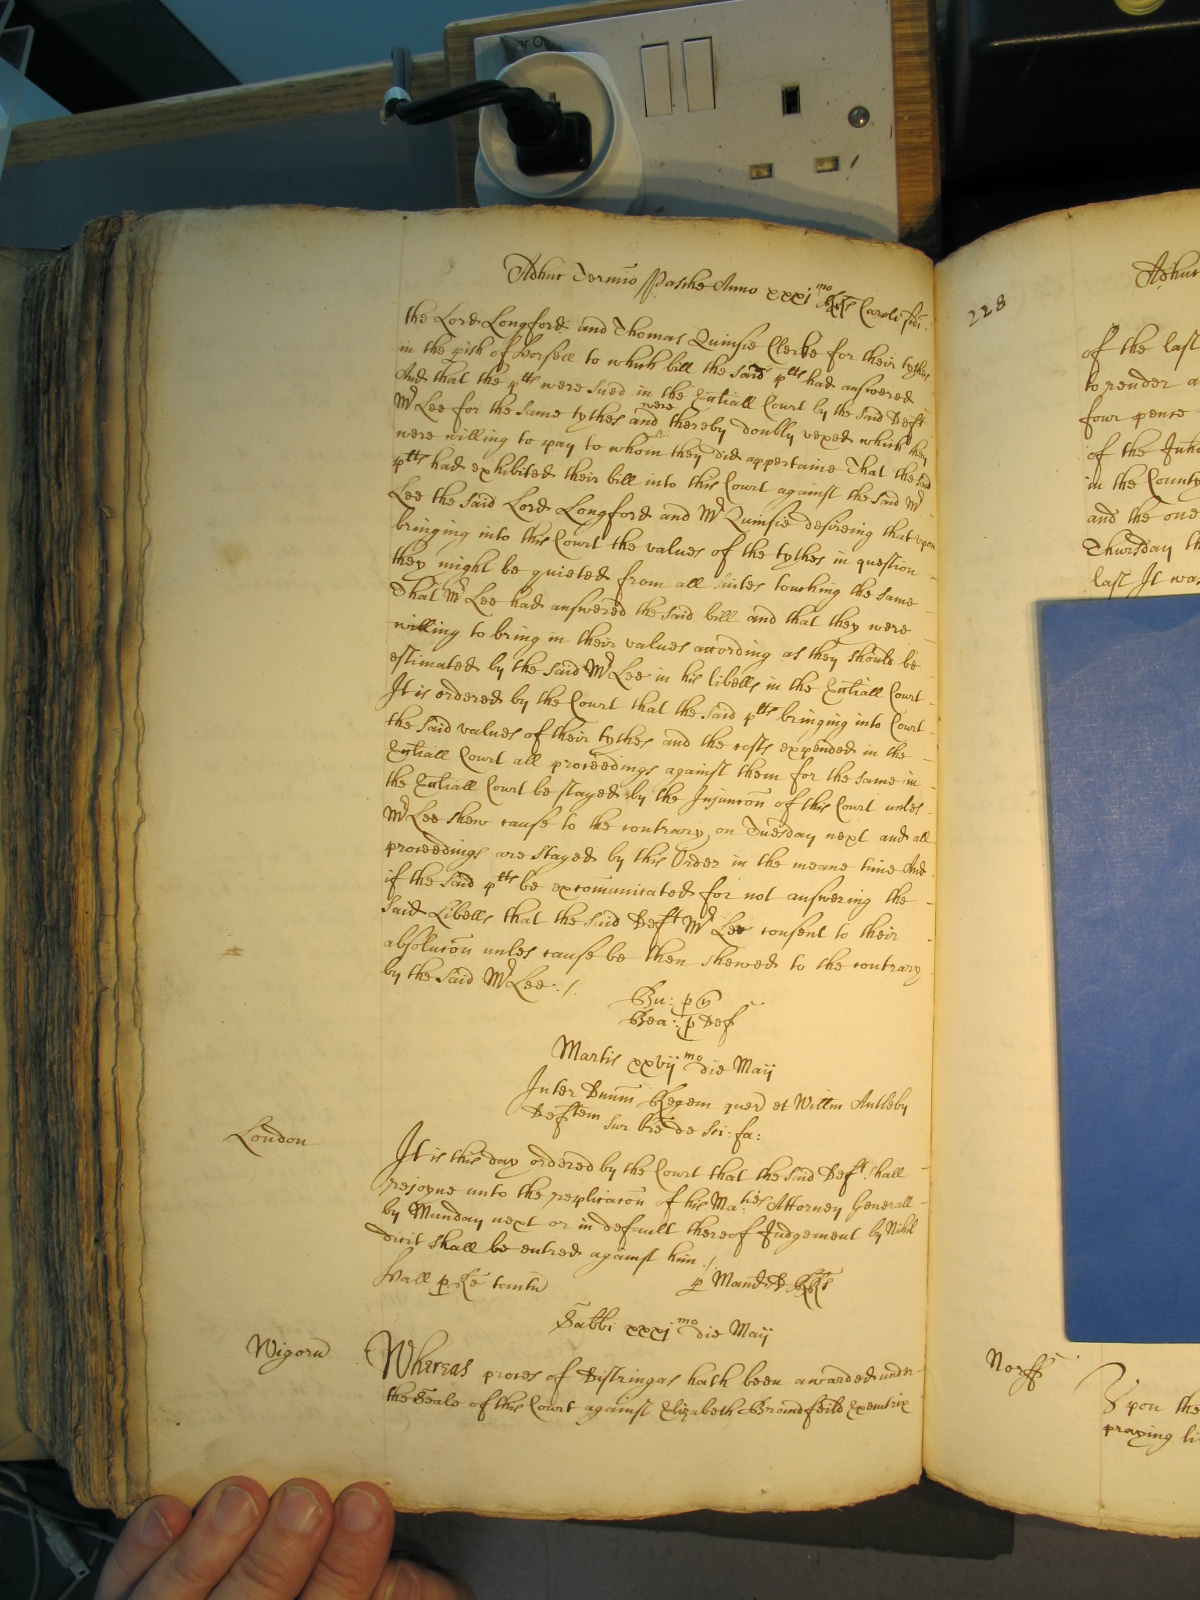 Adhuc Termino Pasche Anno xxxi mo Rs Caroli sdi.
the Lord Longford and Thomas Quinsie Clerke for their tythes
in the pish of Horsell to which bill the said p lts had answered
And that the p lts were sued in the Ecctiall Court by the said Deft
Mr Lee for the same tythes and were thereby doubly vexed which they
were willing to pay to whom they did appertaine That the said
p lts had exhibited their bill into this Court against the said Mr
Lee the said Lord Longford and Mr Quinsie desireing that upon
bringing into this Court the values of the tythes in question
they might be quieted from all suites touching the same
That Mr Lee had answered the said bill and that they were
willing to bring in their values according as they should be
estimated by the said Mr Lee in his libells in the Ecctiall Court
It is ordered by the Court that the said p lts bringing into Court
the said values of their tythes and the costs expended in the
Ecctiall Court all proceedings against them for the same in
the Ecctiall Court be stayed by the Injuncon of this Court unles
Mr Lee shew cause to the contrary on Tuesday next and all
proceedings are stayed by this Order in the meane time And
if the said p lts be excomunicated for not answering the
said Libells that the said Deft Mr Lee consent to their
absolucon unles cause be then shewed to the contrary
by the said Mr Lee ./.
Bu: p Q
Bea: p Def
Martis xxvij mo die Maij
Inter Dnum Regem quer et Willm Anlleby
Deftem sur bre de Sci: fa:
London
It is this day ordered by the Court that the said Deft shall
rejoyne unto the replicacon of his Ma ties Attorney Generall
by Munday next or in default thereof Judgement by Nihil
dicit shall be entred against him ./
Hall p Re tantu p Mand B
Sabbi xxxi mo die Maij
Wigorn
Whereas proces of Distringas hath been awarded under
the Seale of this Court against Elizabeth Bromfeild Executrix
228
Adhuc
of the last
to render a
four pence
of the
in the County
and the one
Thursday th
last It was
Norff
Upon the
praying